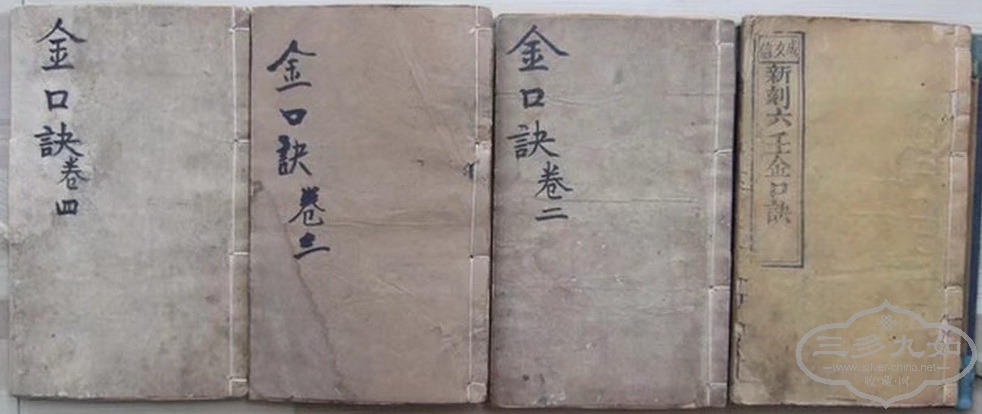 成文信
新刻六壬金口訣
金口訣卷二
金口訣卷三
金口訣卷四
三多九如
www.silver-china.net
收藏网